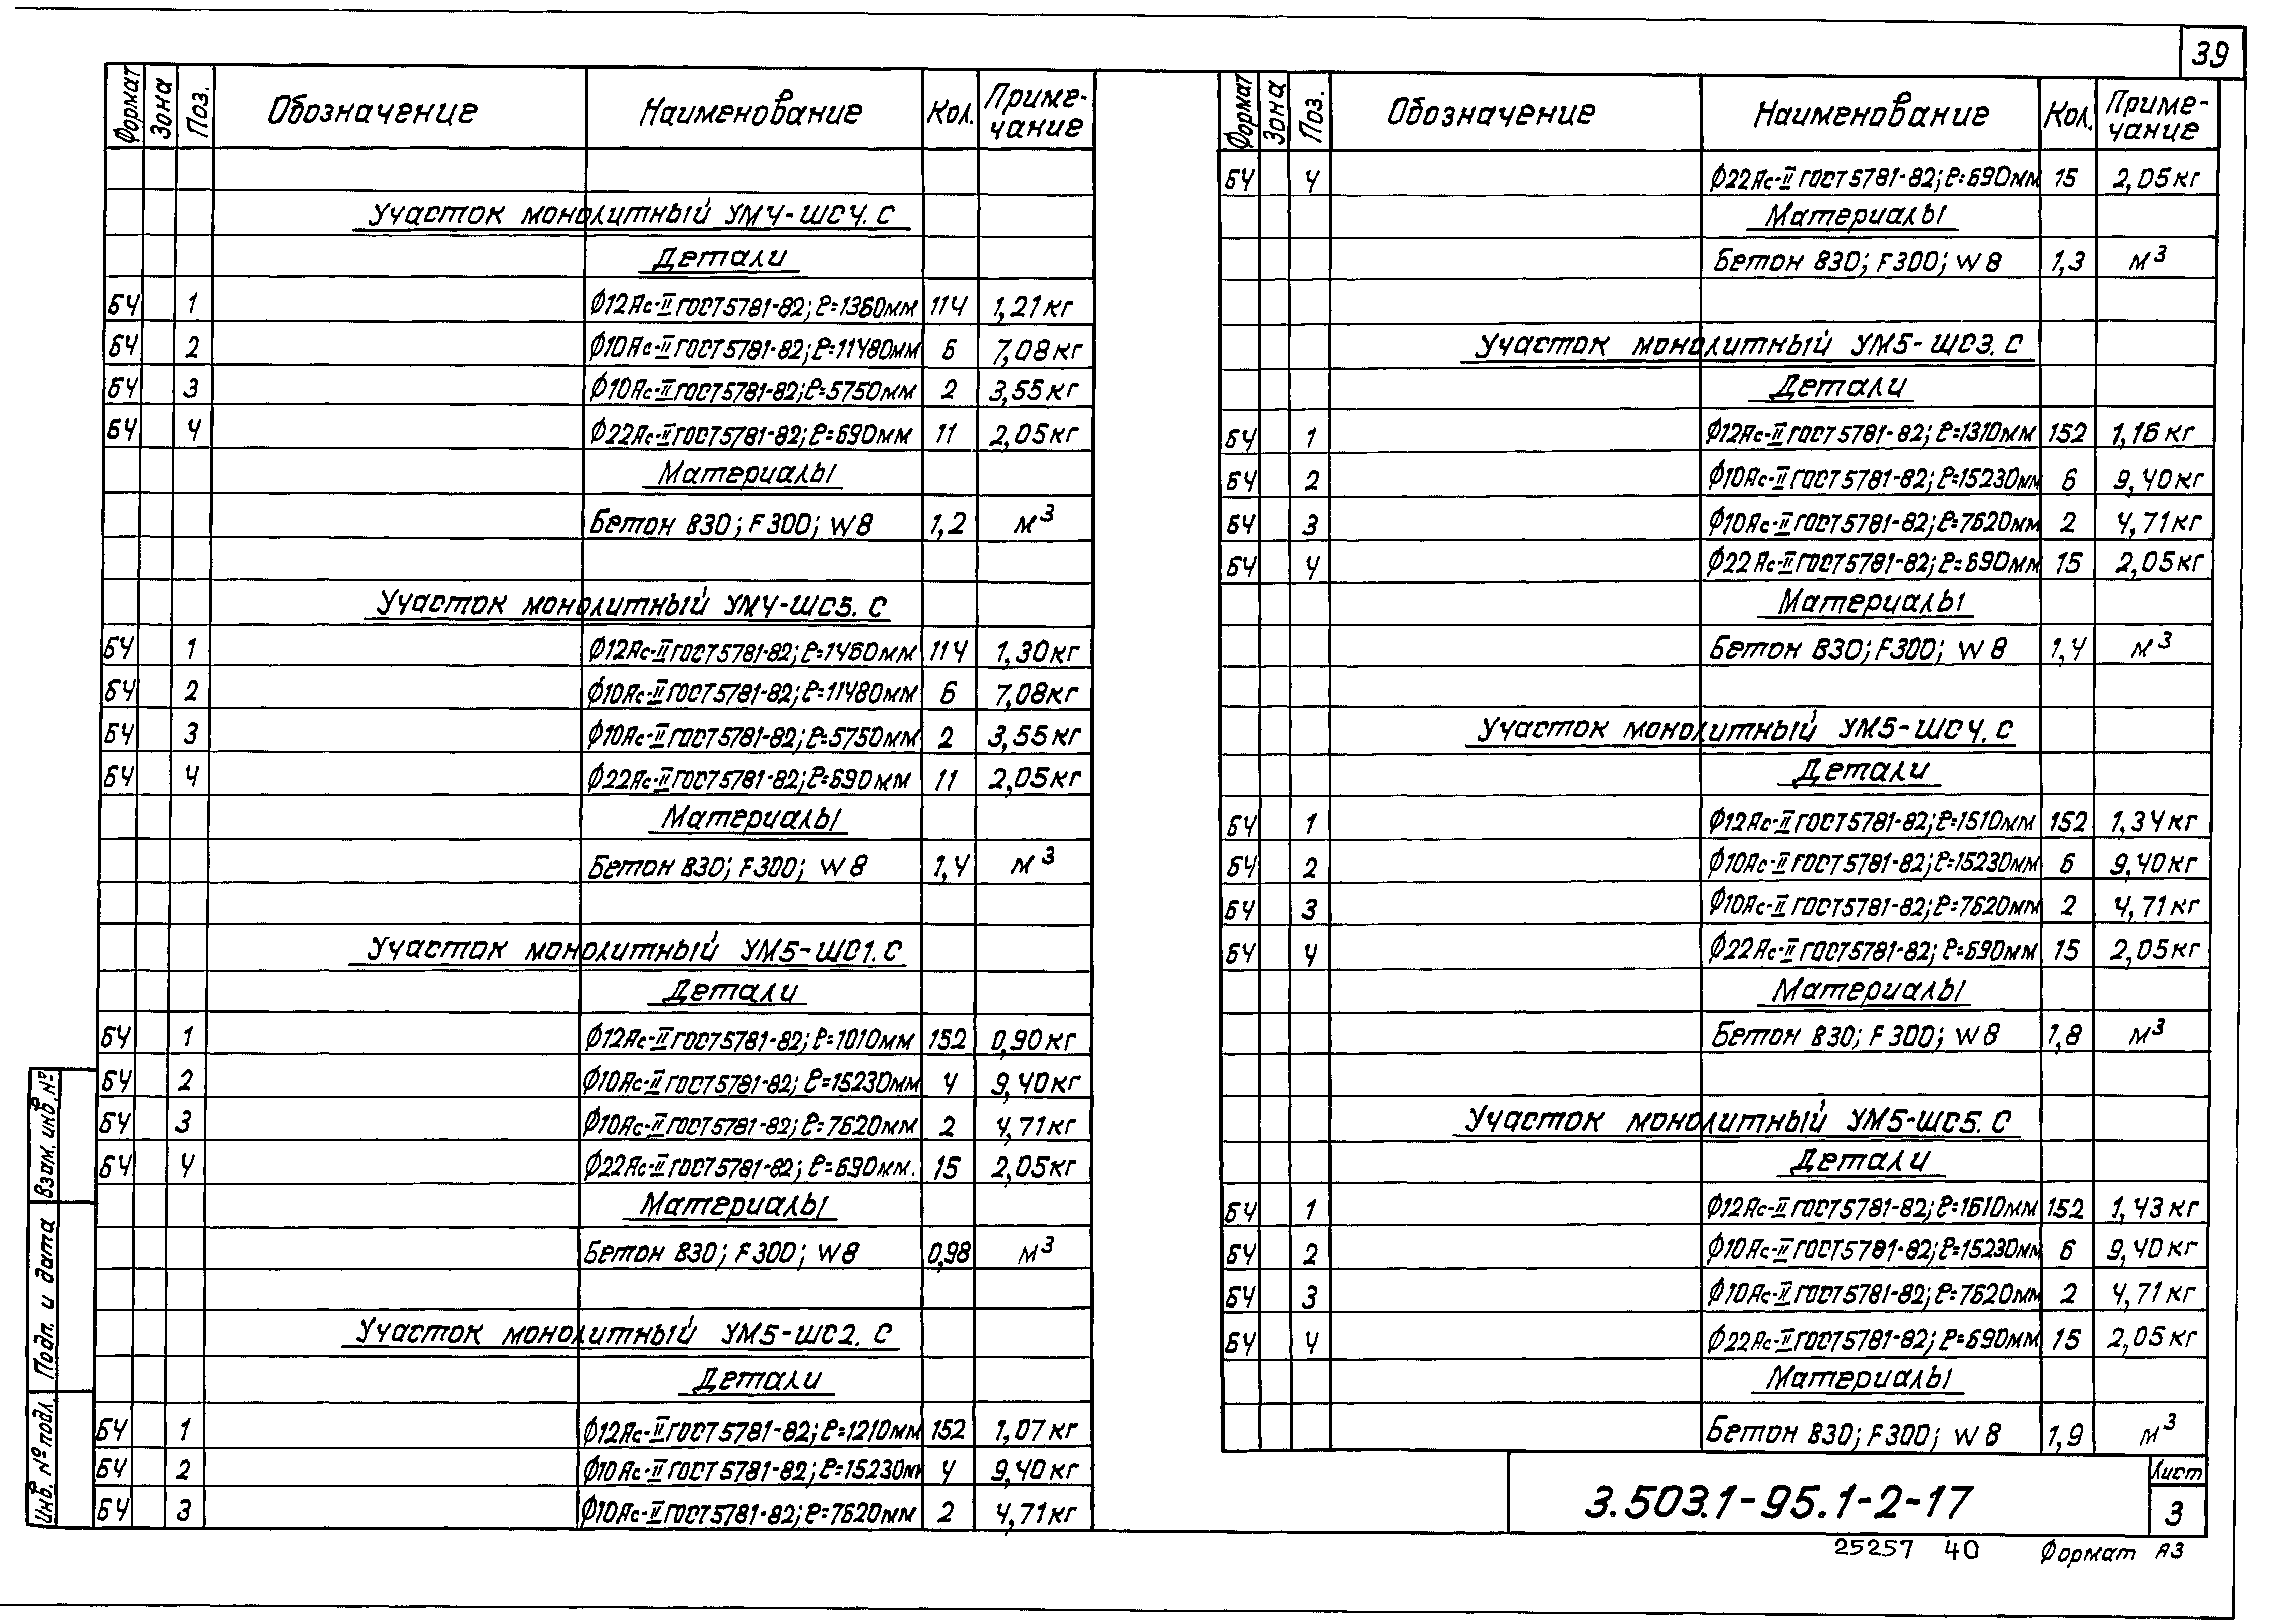 39
Формат Зона Поз. Обозначение Наименование Кол. Приме-чание
Участок монолитный УМ4-ШС4.С
Детали
БЧ 1 Ф12Ас-II ГОСТ5781-82; ℓ=1360мм 114 1,21кг
БЧ 2 Ф10Ас-II ГОСТ5781-82; ℓ=11480мм 6 7,08кг
БЧ 3 Ф10Ас-II ГОСТ5781-82; ℓ=5750мм 2 3,55кг
БЧ 4 Ф22Ас-II ГОСТ5781-82; ℓ=690мм 11 2,05кг
Материалы
Бетон В30; F300; W8 1,2 м³
Участок монолитный УМ4-ШС5.С
БЧ 1 Ф12Ас-II ГОСТ5781-82; ℓ=1460мм 114 1,30кг
БЧ 2 Ф10Ас-II ГОСТ5781-82; ℓ=11480мм 6 7,08кг
БЧ 3 Ф10Ас-II ГОСТ5781-82; ℓ=5750мм 2 3,55кг
БЧ 4 Ф22Ас-II ГОСТ5781-82; ℓ=690мм 11 2,05кг
Материалы
Бетон В30; F300; W8 1,4 м³
Участок монолитный УМ5-ШС1.С
Детали
БЧ 1 Ф12Ас-II ГОСТ5781-82; ℓ=1010мм 152 0,90кг
БЧ 2 Ф10Ас-II ГОСТ5781-82; ℓ=15230мм 4 9,40кг
БЧ 3 Ф10Ас-II ГОСТ5781-82; ℓ=7620мм 2 4,71кг
БЧ 4 Ф22Ас-II ГОСТ5781-82; ℓ=690мм. 15 2,05кг
Материалы
Бетон В30; F300; W8 0,98 м³
Участок монолитный УМ5-ШС2.С
Детали
БЧ 1 Ф12Ас-II ГОСТ5781-82; ℓ=1210мм 152 1,07кг
БЧ 2 Ф10Ас-II ГОСТ5781-82; ℓ=15230мм 4 9,40кг
БЧ 3 Ф10Ас-II ГОСТ5781-82; ℓ=7620мм 2 4,71кг
Формат Зона Поз. Обозначение Наименование Кол. Приме-чание
БЧ 4 Ф22Ас-II ГОСТ5781-82; ℓ=690мм 15 2,05кг
Материалы
Бетон В30; F300; W8 1,3 м³
Участок монолитный УМ5-ШС3.С
Детали
БЧ 1 Ф12Ас-II ГОСТ5781-82; ℓ=1310мм 152 1,16кг
БЧ 2 Ф10Ас-II ГОСТ5781-82; ℓ=15230мм 6 9,40кг
БЧ 3 Ф10Ас-II ГОСТ5781-82; ℓ=7620мм 2 4,71кг
БЧ 4 Ф22Ас-II ГОСТ5781-82; ℓ=690мм 15 2,05кг
Материалы
Бетон В30; F300; W8 1,4 м³
Участок монолитный УМ5-ШС4.С
Детали
БЧ 1 Ф12Ас-II ГОСТ5781-82; ℓ=1510мм 152 1,34кг
БЧ 2 Ф10Ас-II ГОСТ5781-82; ℓ=15230мм 6 9,40кг
БЧ 3 Ф10Ас-II ГОСТ5781-82; ℓ=7620мм 2 4,71кг
БЧ 4 Ф22Ас-II ГОСТ5781-82; ℓ=690мм 15 2,05кг
Материалы
Бетон В30; F300; W8 1,8 м³
Участок монолитный УМ5-ШС5.С
Детали
БЧ 1 Ф12Ас-II ГОСТ5781-82; ℓ=1610мм 152 1,43кг
БЧ 2 Ф10Ас-II ГОСТ5781-82; ℓ=15230мм 6 9,40кг
БЧ 3 Ф10Ас-II ГОСТ5781-82; ℓ=7620мм 2 4,71кг
БЧ 4 Ф22Ас-II ГОСТ5781-82; ℓ=690мм 15 2,05кг
Материалы
Бетон В30; F300; W8 1,9 м³
Инв. № подл. Подп. и дата Взам. инв. №
3.503.1-95.1-2-17
Лист
3
25257 40 Формат А3